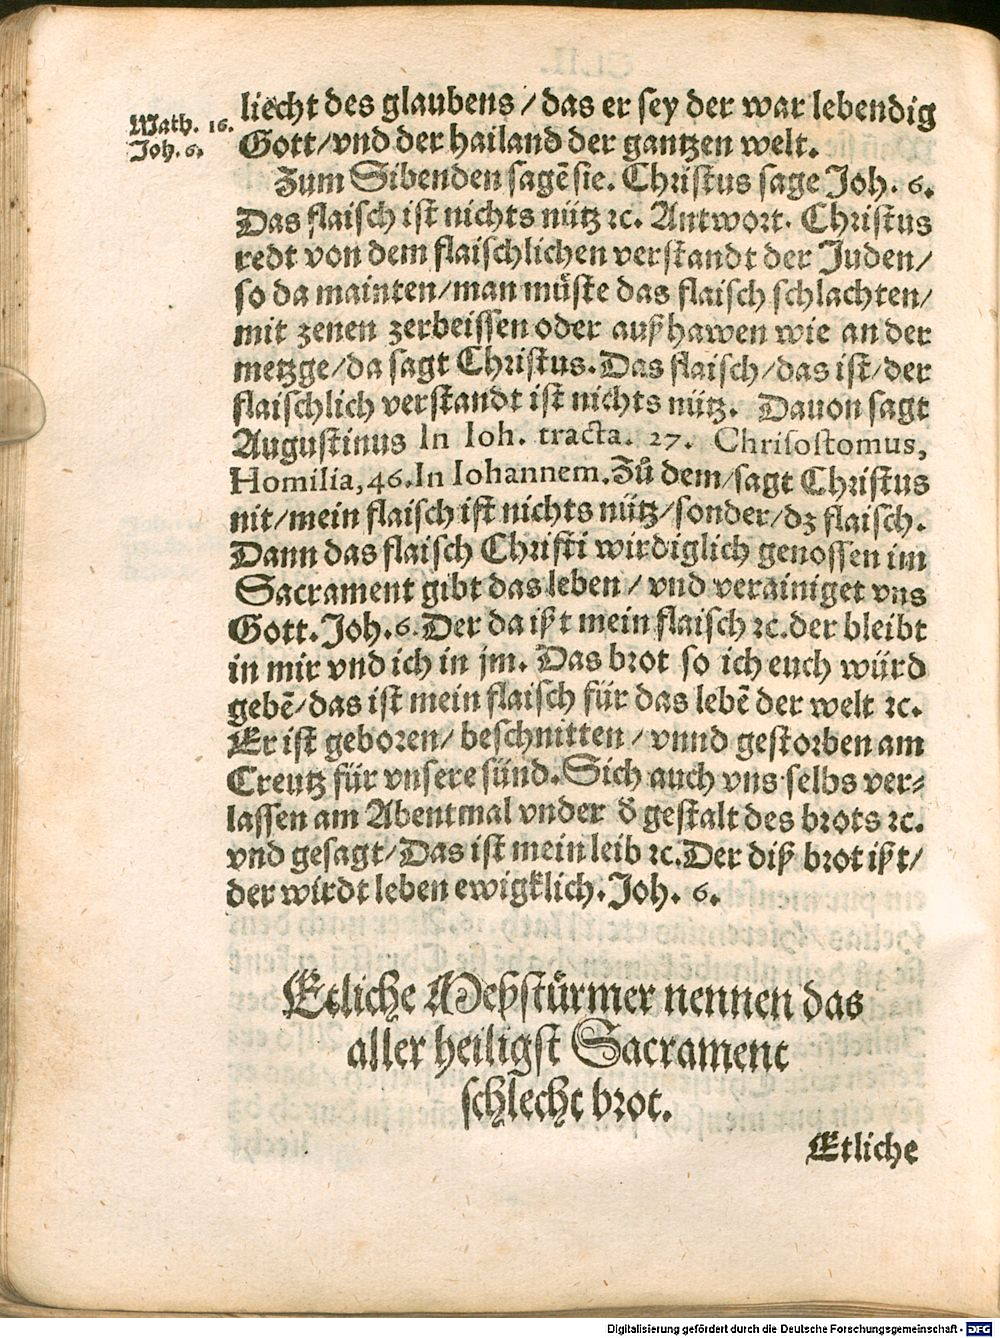 Math. 16.
Joh. 6.
liecht des glaubens / das er sey der war lebendig
Gott / vnd der hailand der gantzen welt.
Zum Sibenden sagē sie. Christus sage Joh. 6.
Das flaisch ist nichts nütz ꝛc. Antwort. Christus
redt von dem flaischlichen verstandt der Juden /
so da mainten / man müste das flaisch schlachten /
mit zenen zerbeissen oder außhawen wie an der
metzge / da sagt Christus. Das flaisch / das ist / der
flaischlich verstandt ist nichts nütz. Dauon sagt
Augustinus In Ioh. tracta. 27. Chrisostomus,
Homilia, 46. In Iohannem. Zů dem / sagt Christus
nit / mein flaisch ist nichts nütz / sonder / dz flaisch.
Dann das flaisch Christi wirdiglich genossen im
Sacrament gibt das leben / vnd verainiget vns
Gott. Joh. 6. Der da ißt mein flaisch ꝛc. der bleibt
in mir vnd ich in jm. Das brot so ich euch würd
gebē / das ist mein flaisch für das lebē der welt ꝛc.
Er ist geboren / beschnitten / vnnd gestorben am
Creutz für vnsere sünd. Sich auch vns selbs ver⸗
lassen am Abentmal vnder d̄ gestalt des brots ꝛc.
vnd gesagt / Das ist mein leib ꝛc. Der diß brot ißt /
der wirdt leben ewigklich. Joh. 6.
Etliche Meßstürmer nennen das
aller heiligst Sacrament
schlecht brot.
Etliche
Digitalisierung gefördert durch die Deutsche Forschungsgemeinschaft - DFG